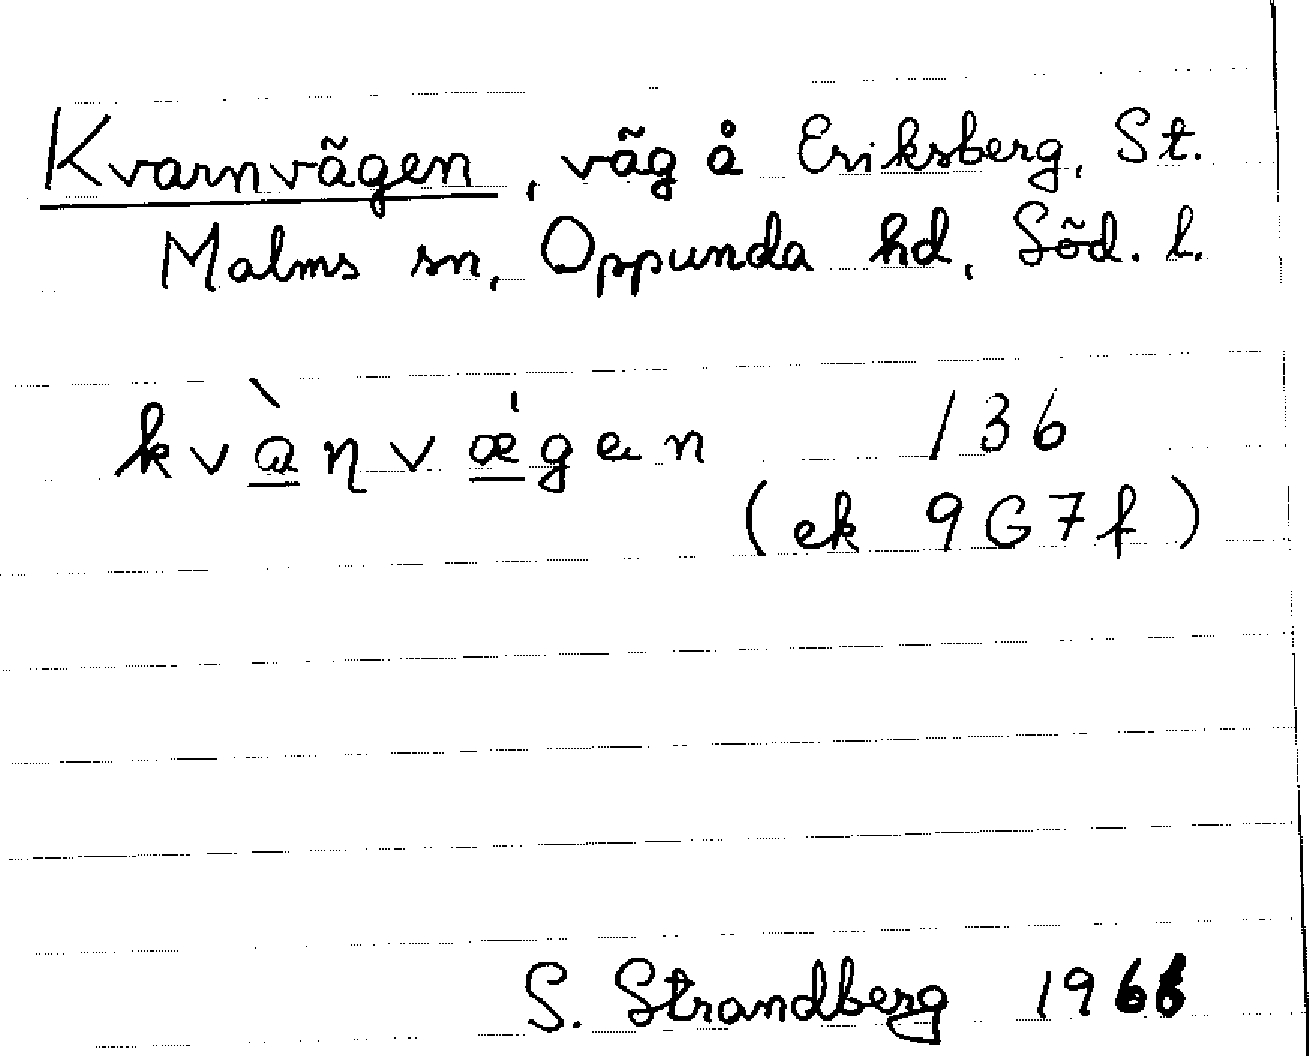 Kvarnvägen, väg å Eriksberg, St.
Malms sn, Oppunda hd, Söd. l.
kvàɳvǽgen 136
(ek 9G7f)
S. Strandberg 1966